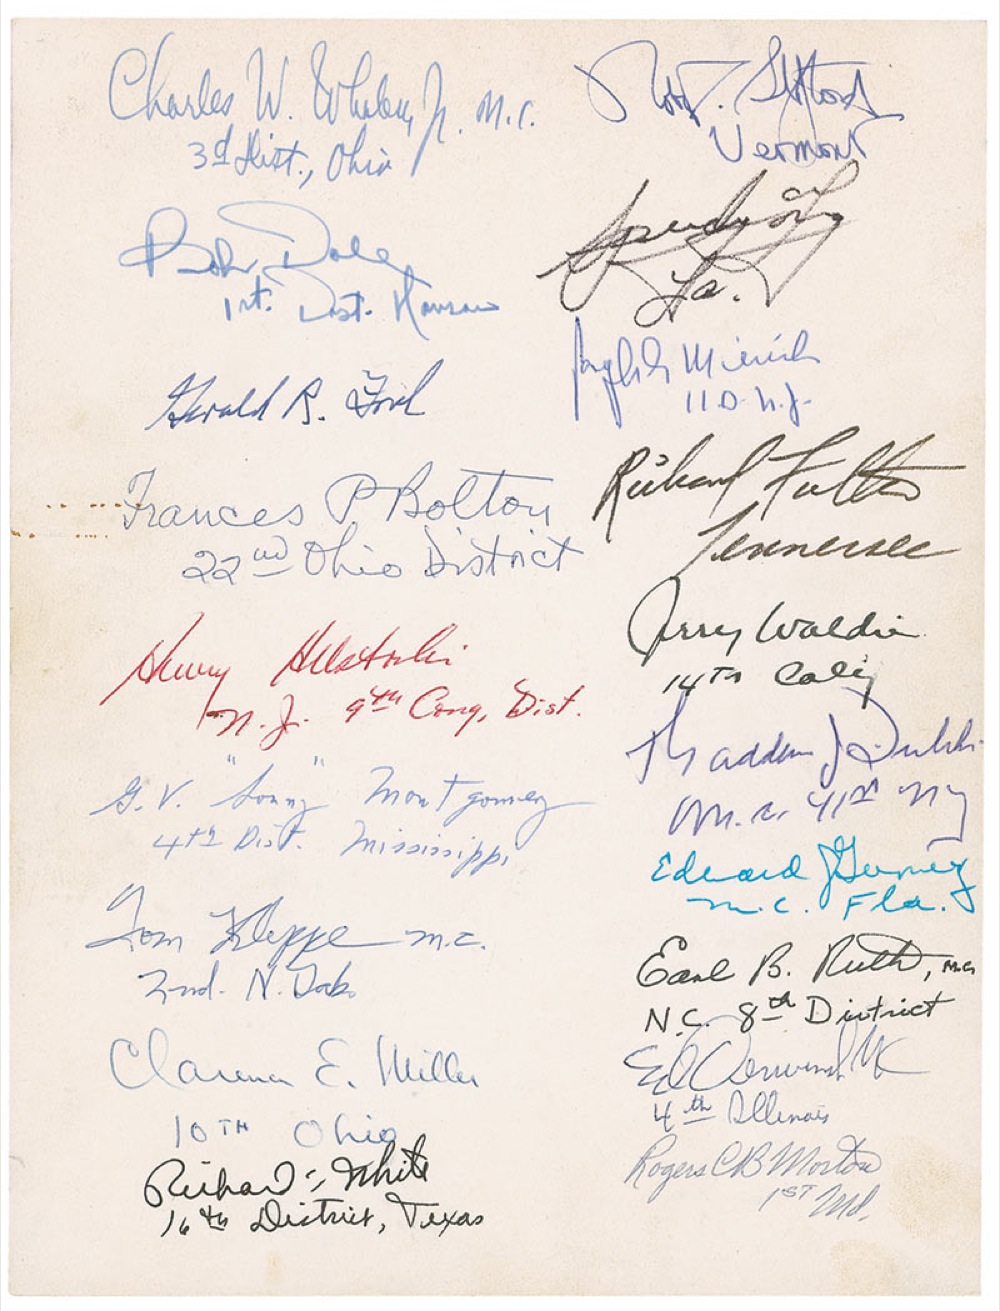 Charles W. Whalen, Jr. M.C.
3d Dist., Ohio
Bob Dole
1st. Dist. Kansas
Gerald R. Ford
Frances P Bolton
22nd Ohio District
Henry Helstoski
N.J. 9th Cong, Dist.
G. V. "Sonny" Montgomery
4th Dist. Mississippi
Tom Kleppe M.C.
2nd. N. Dak.
Clarence E. Miller
10TH Ohio
Richard White
16th District, Texas
Robt. T. Stafford
Vermont
Speedy O. Long
La.
Joseph G. Minish
11 D. N.J.
Richard Fulton
Tennessee
Jerry Waldie
14th Calif
Thaddeus J. Dulski
M.C. 41st NY
Edward J Gurney
M.C. Fla.
Earl B. Ruth, M.C.
N.C. 8th District
Ed Derwinski MC
4th Illinois
Rogers CB Morton
1ST Md.